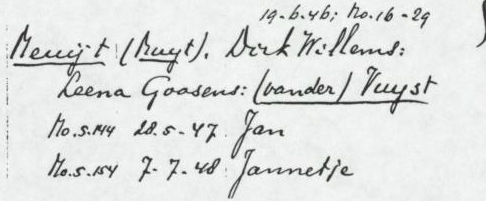 19-6-46; No. 16-29
Meuijt (Muyt). Dirk Willems:
Leena Goosens: (vander) Vuyst
No.S.144 28.5-47 Jan
No.S.154 7-7.48 Jannetje